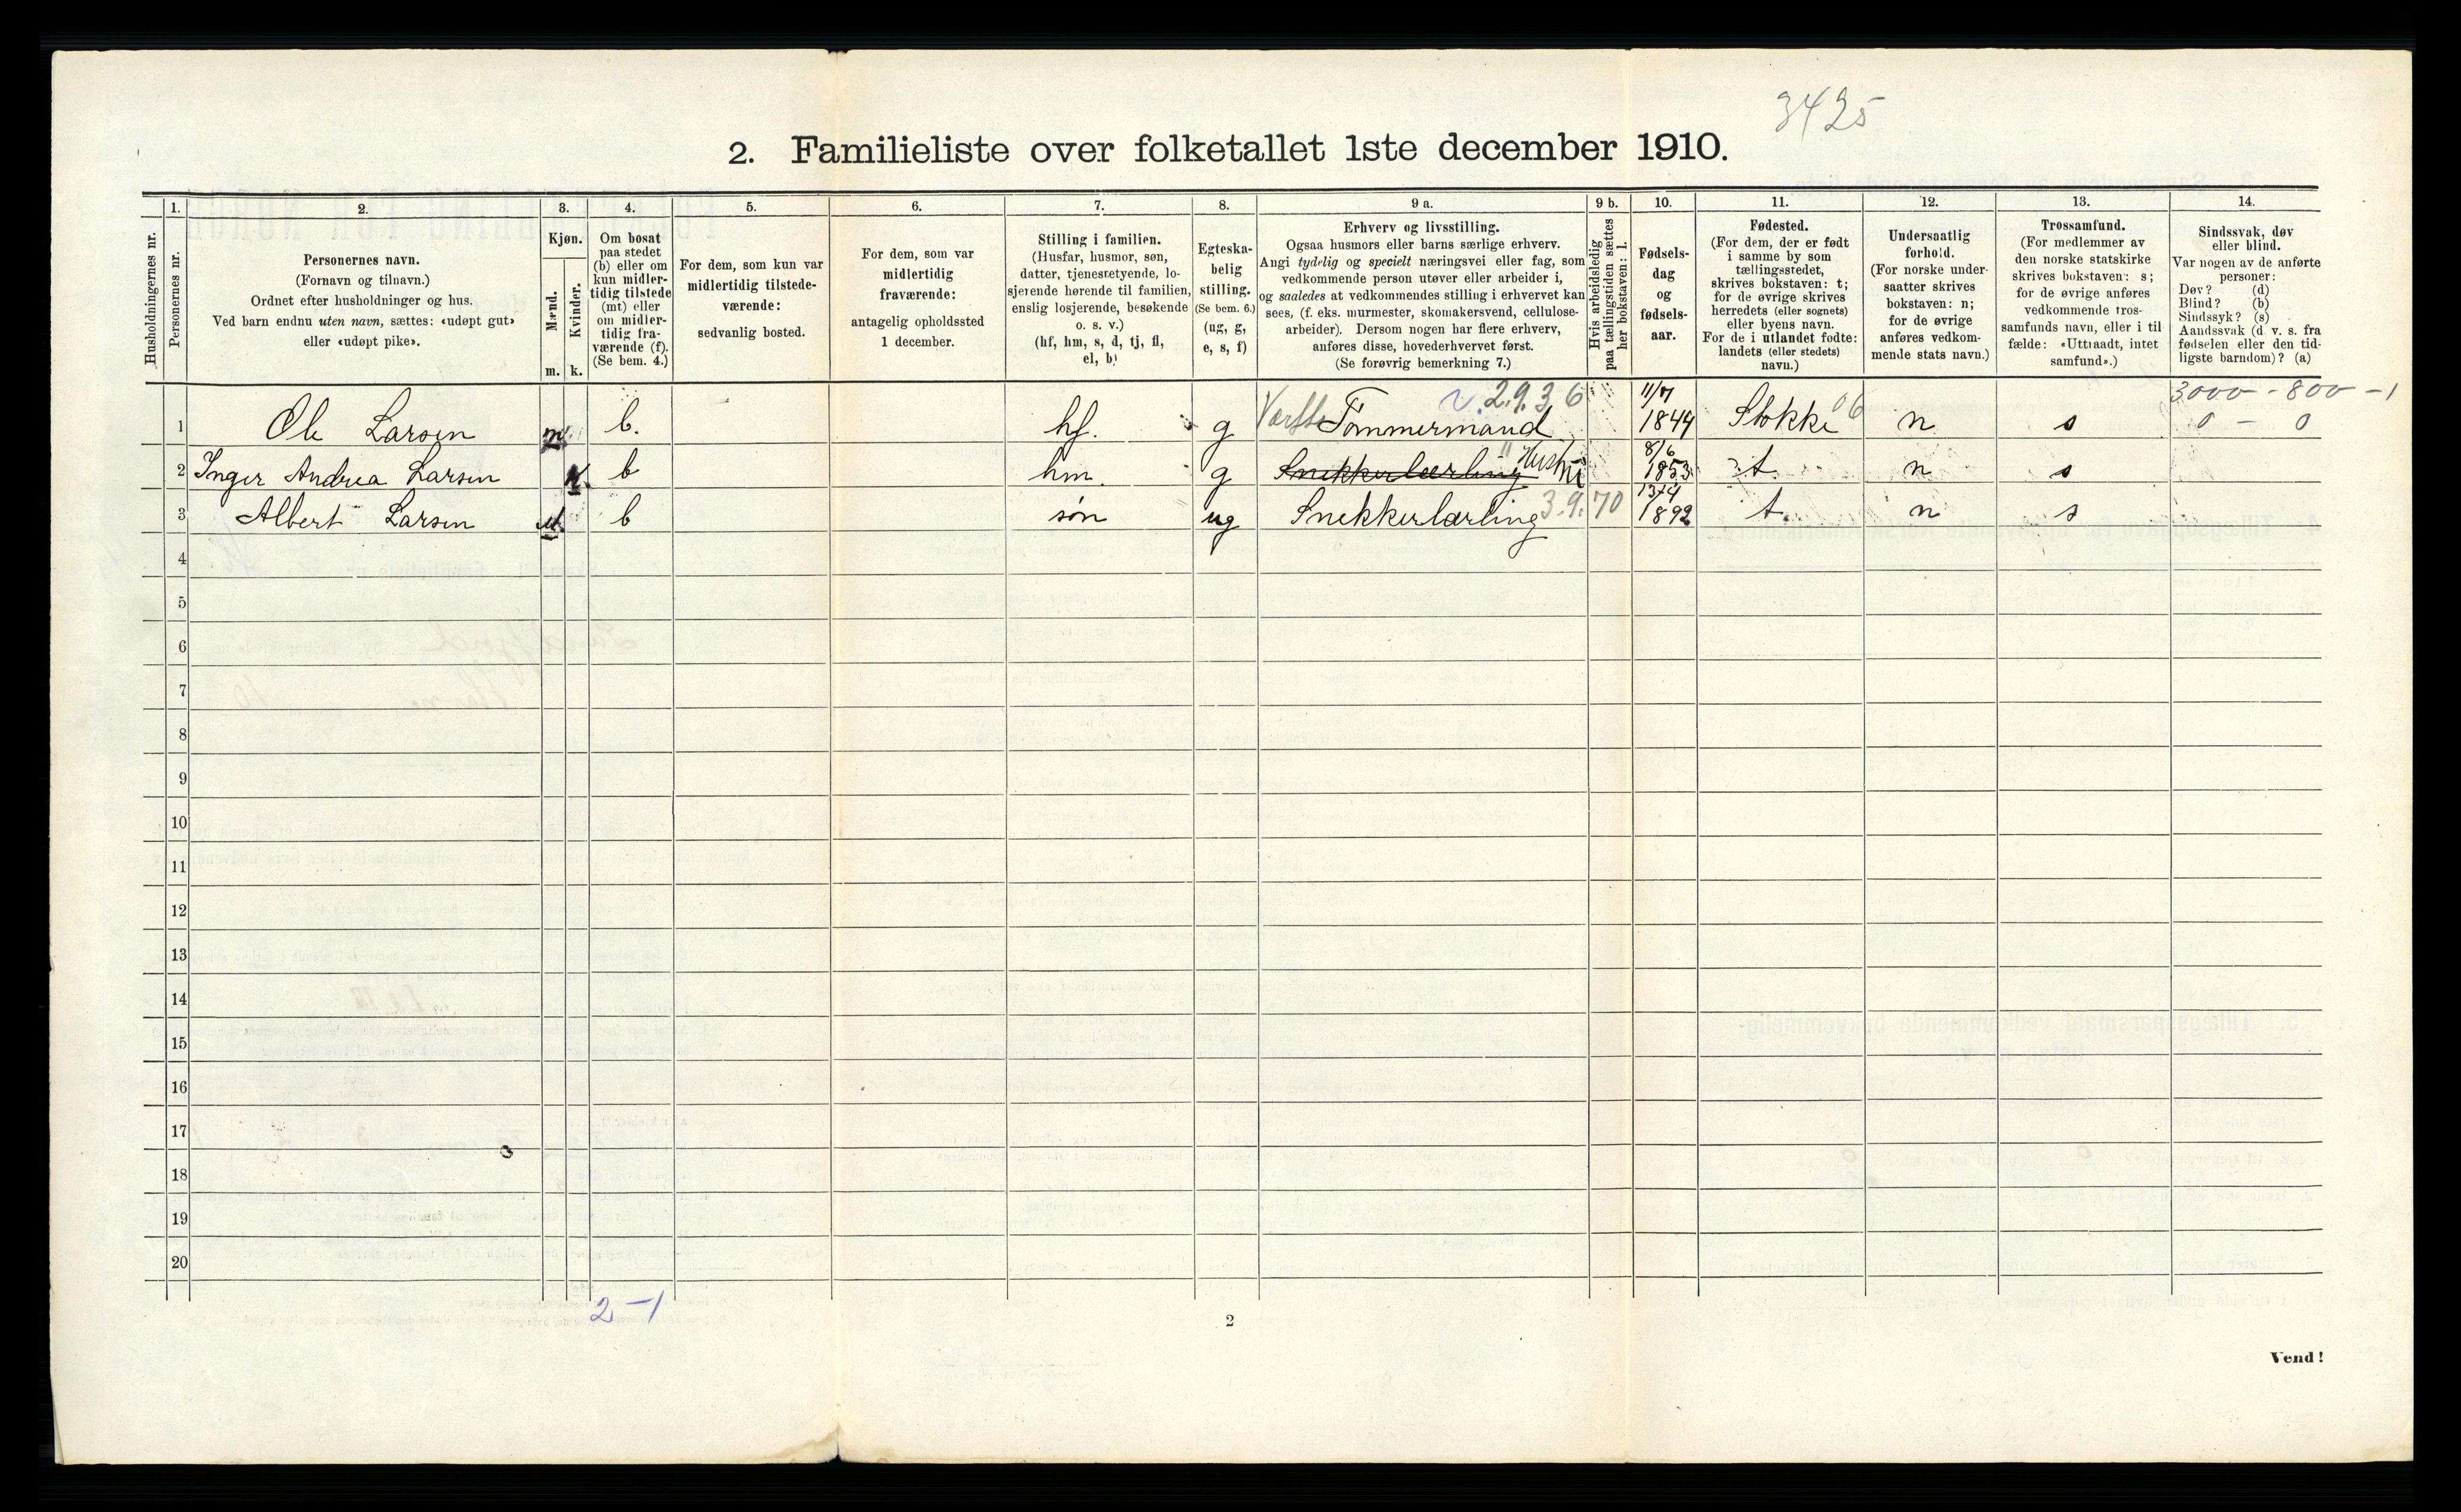 3425
2. Familieliste over folketallet 1ste december 1910.
Husholdningernes nr.
1.
Personernes nr.
2.
Personernes navn.
(Fornavn og tilnavn.)
Ordnet efter husholdninger og hus.
Ved barn endnu uten navn, sættes: «udøpt gut»
eller «udøpt pike».
3.
Kjøn.
Mænd.
Kvinder.
m. k.
4.
Om bosat
paa stedet
(b) eller om
kun midler-
tidig tilstede
(mt) eller
om midler-
tidig fra-
værende (f).
(Se bem. 4.)
5.
For dem, som kun var
midlertidig tilstede-
værende:
sedvanlig bosted.
6.
For dem, som var
midlertidig
fraværende:
antagelig opholdssted
1 december.
7.
Stilling i familien.
(Husfar, husmor, søn,
datter, tjenestetyende, lo-
sjerende hørende til familien,
enslig losjerende, besøkende
o. s. v.)
(hf, hm, s, d, tj, fl,
el, b)
8.
Egteska-
belig
stilling.
(Se bem. 6.)
(ug, g,
e, s, f)
9 a.
Erhverv og livsstilling.
Ogsaa husmors eller barns særlige erhverv.
Angi tydelig og specielt næringsvei eller fag, som
vedkommende person utøver eller arbeider i,
og saaledes at vedkommendes stilling i erhvervet kan
sees, (f. eks. murmester, skomakersvend, cellulose-
arbeider). Dersom nogen har flere erhverv,
anføres disse, hovederhvervet først.
(Se forøvrig bemerkning 7.)
9 b.
Hvis arbeidsledig
paa tællingstiden sættes
her bokstaven: l.
10.
Fødsels-
dag
og
fødsels-
aar.
11.
Fødested.
(For dem, der er født
i samme by som
tællingsstedet,
skrives bokstaven: t;
for de øvrige skrives
herredets (eller sognets)
eller byens navn.
For de i utlandet fødte:
landets (eller stedets)
navn.)
12.
Undersaatlig
forhold.
(For norske under-
saatter skrives
bokstaven: n;
for de øvrige
anføres vedkom-
mende stats navn.)
13.
Trossamfund.
(For medlemmer av
den norske statskirke
skrives bokstaven: s;
for de øvrige anføres
vedkommende tros-
samfunds navn, eller i til
fælde: «Uttraadt, intet
samfund».)
14.
Sindssvak, døv
eller blind.
Var nogen av de anførte
personer:
Døv? (d)
Blind? (b)
Sindssyk? (s)
Aandssvak (d. v. s. fra
fødselen eller den tid-
ligste barndom)? (a)
2.9.36 3000 - 800 - 1
1 Ole Larsen m b. hf. g Tömmermand 11/7 1844 Stokke 06 n s 0 - 0
2 Inger Andrea Larsen k. b hm. g Snekkerlærling 8/6 1853 t. n s
3 Albert Larsen m. b søn ug Snekkerlærling 3.9.70 13/4 1892 t. n s
4
5
6
7
8
9
10
11
12
13
14
15
16
17
18
19
20
2-1
2
Vend!